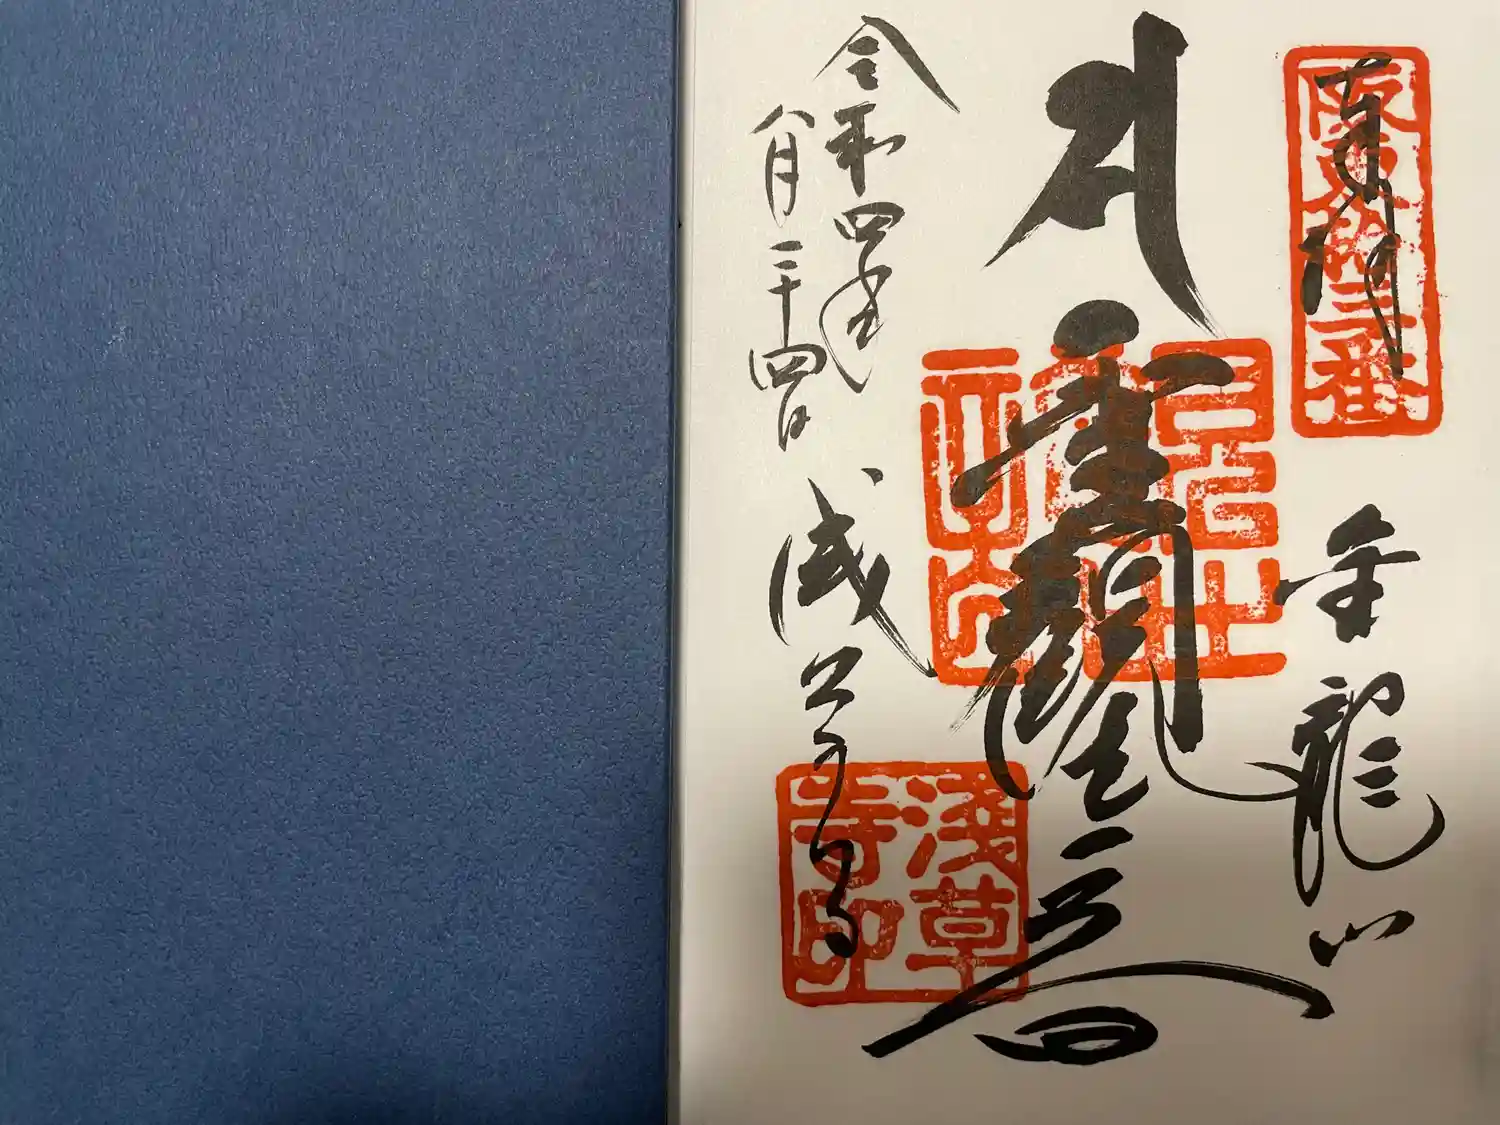 奉拝
阪東拾三番
金龍山
聖観世音
令和四年
八月二十四日
浅草寺
淺草
寺印